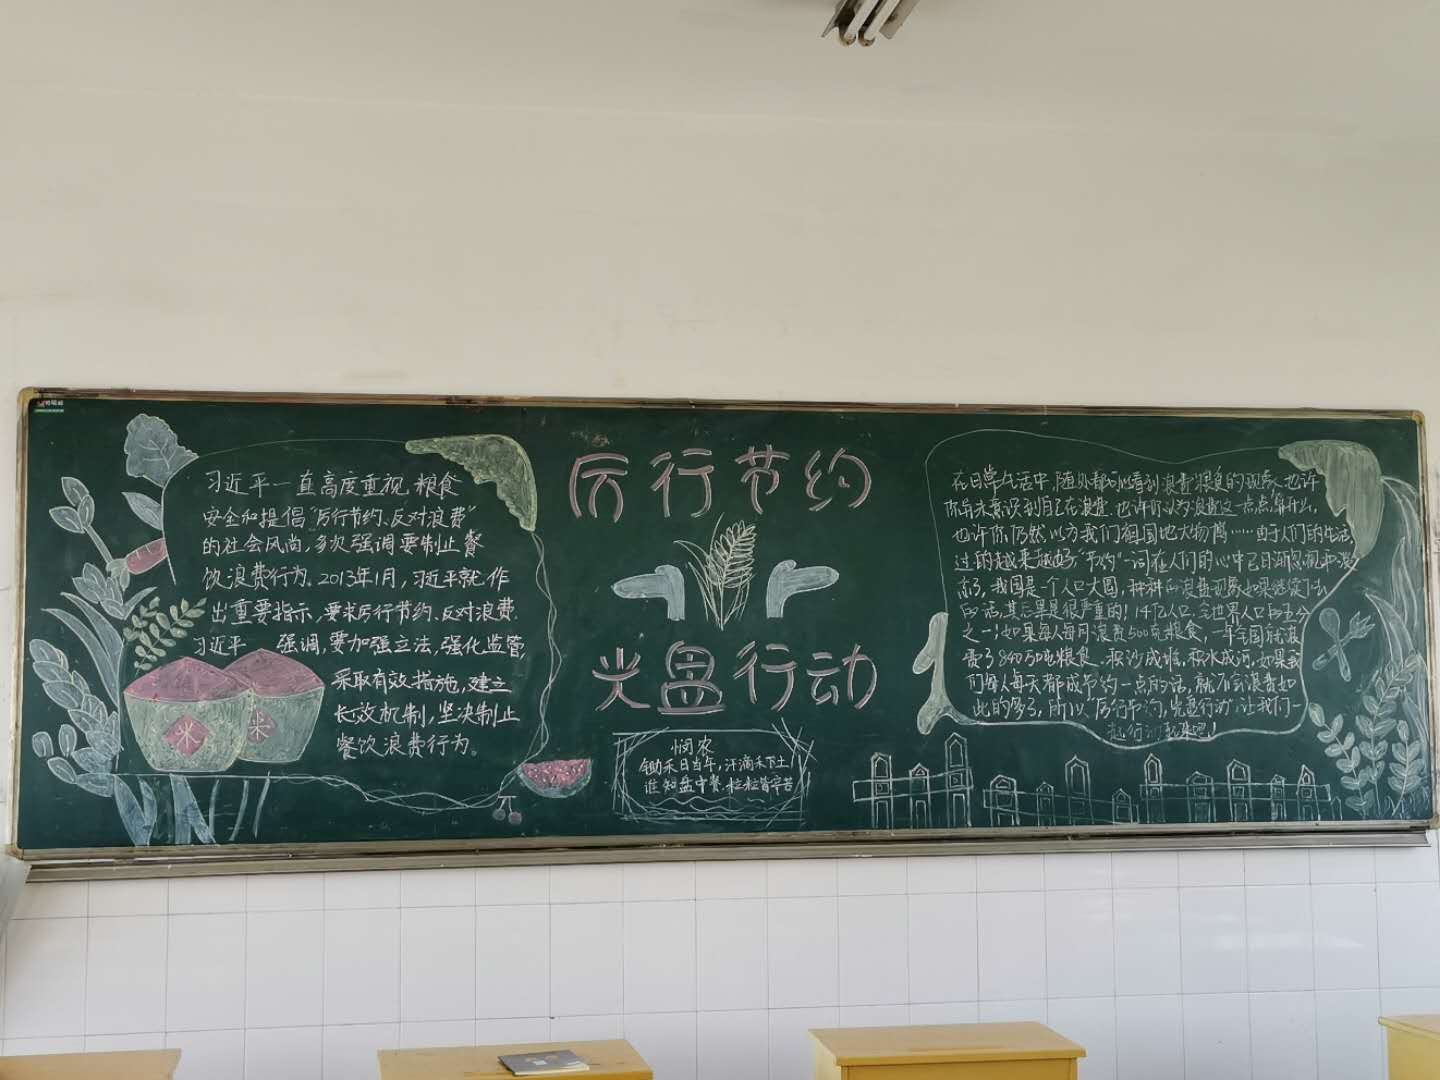 习近平一直高度重视粮食
安全和提倡“厉行节约、反对浪费”
的社会风尚,多次强调要制止餐
饮浪费行为。2013年1月,习近平就作
出重要指示,要求厉行节约、反对浪费.
习近平 强调,要加强立法,强化监管,
采取有效措施,建立
长效机制,坚决制止
餐饮浪费行为。
米
米
厉行节约
光盘行动
悯农
锄禾日当午,汗滴禾下土
谁知盘中餐.粒粒皆辛苦
在日常生活中,随处都可以看到浪费粮食的现象.也许
你并未意识到自己在浪费.也许你认为浪费这一点点算什么,
也许你仍然以为我们祖国地大物博……由于人们的生活,
过的越来越好“节约”一词在人们的心中已日渐忽视和淡
忘了,我国是一个人口大国,种种的浪费现象如果继续下去
的话,其后果是很严重的!14亿人口,全世界人口的五分
之一;如果每人每月浪费500克粮食,一年全国就浪
费了840万吨粮食.积沙成堆,积水成河,如果我
们每人每天都成节约一点的话,就不会浪费如
此的多了,所以“厉行节约,光盘行动”让我们一
起行动起来吧!